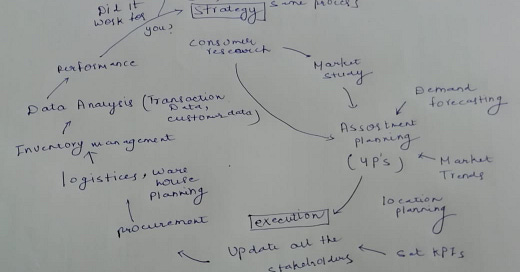 Did it
work for
you?
Strategy same process
Consumer
research
Market
Study
Performance
Demand
forecasting
Data Analysis (Transaction
Data,
customer data)
Assortment
planning
(4P's)
Inventory management
Market
Trends
logistices, ware
house
planning
location
planning
execution
procurement
Update all the
stakeholders
Set KPIs